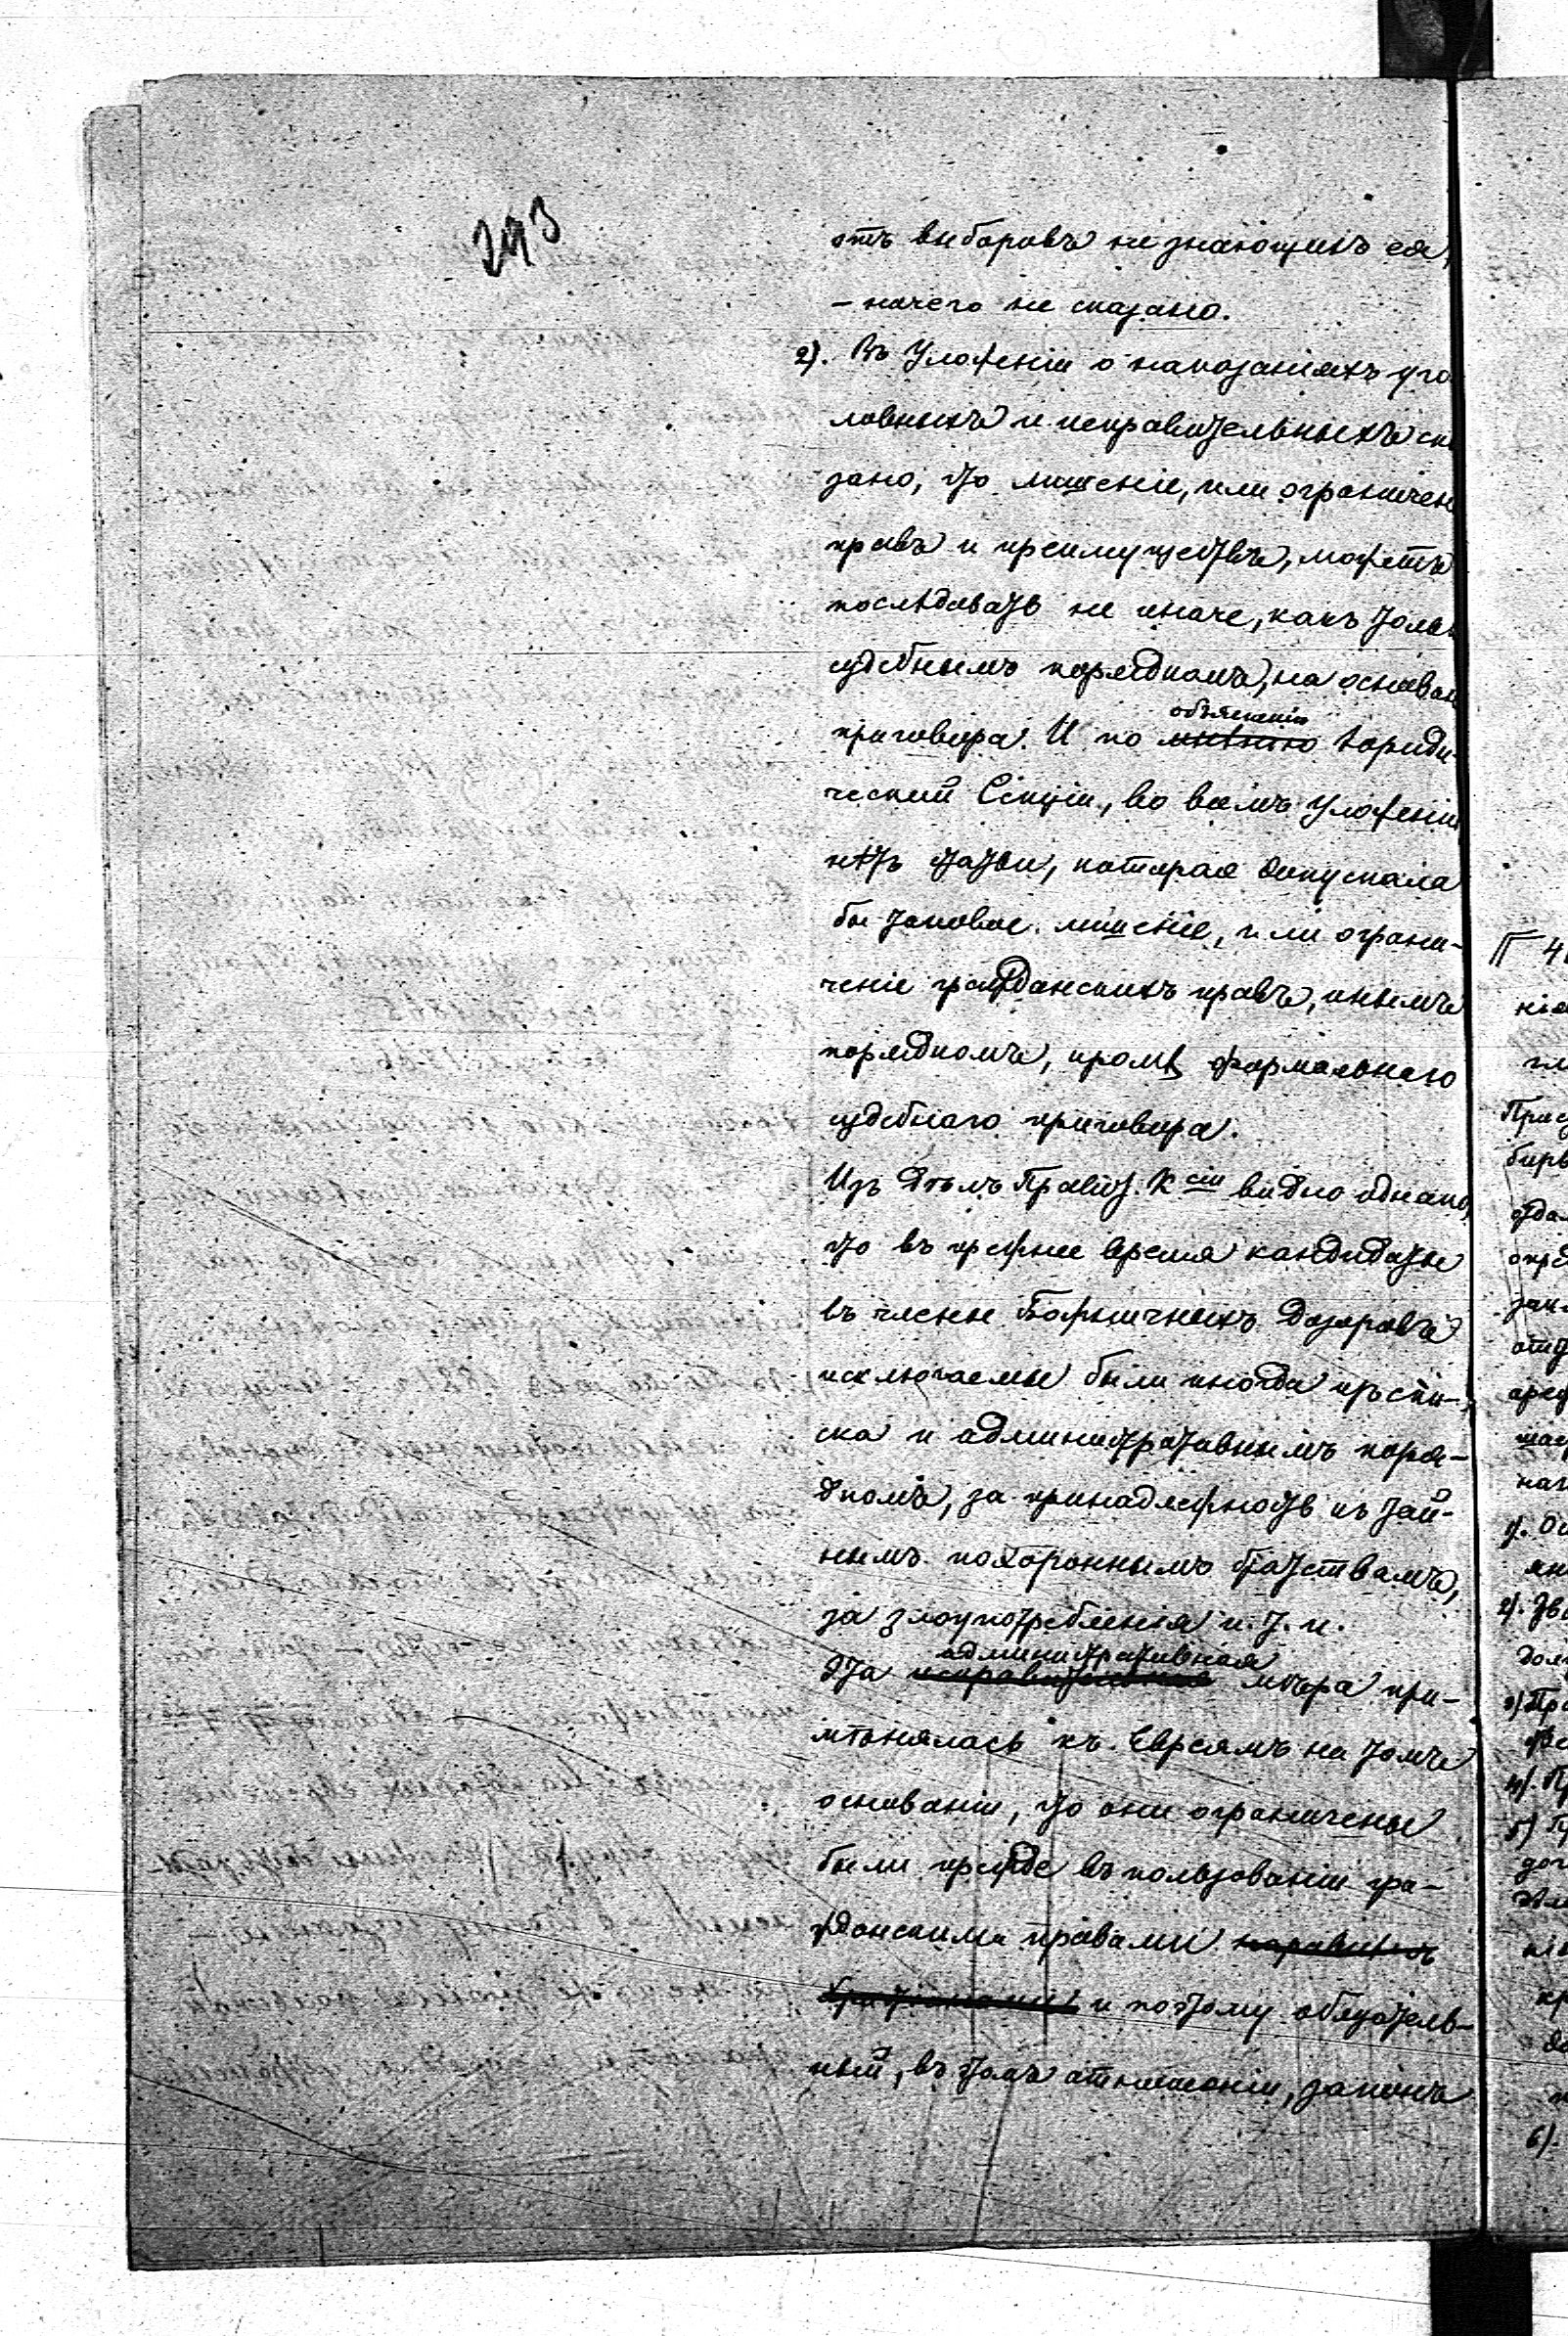 273
отъ выборовъ не знающихъ ея,
– ничего не сказано.
2). Въ Уложеніи о наказаніяхъ уго
ловныхъ и исправительныхъ ска
зано, что лишеніе, или ограничен
правъ и преимуществъ, можетъ
послѣдовать не иначе, какъ толь
судебнымъ порядкомъ, на основан
объясненію
приговора. И по мнѣнію Юриди-
ческой Секціи, во всемъ Уложеніи
нѣтъ статьи, которая допускала
бы таковое лишеніе, или ограни-
ченіе гражданскихъ правъ, инымъ
порядкомъ, кромѣ формальнаго
судебнаго приговора.
Изъ дѣлъ Правит. Ксіи видно однако,
что въ прежнее время кандидаты
въ члены Божничныхъ Дозоровъ
исключаемы были иногда изъ спи-
ска и административнымъ поря-
дкомъ, за принадлежность къ тай-
нымъ похороннымъ братствамъ,
за злоупотребленія и. т. п.
административная
Эта исправительная мѣра при-
мѣнялась къ Евреямъ на томъ
основаніи, что они ограничены
были прежде въ пользованіи гра-
жданскими правами
и потому обязатель-
ный, въ томъ отношеніи, законъ